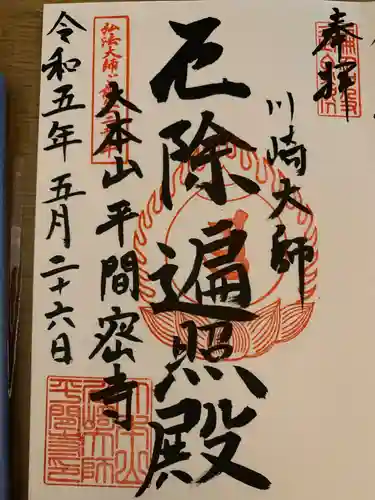 奉拝
川崎大師
厄除遍照殿
大本山平間密寺
弘法大師
令和五年五月二十六日